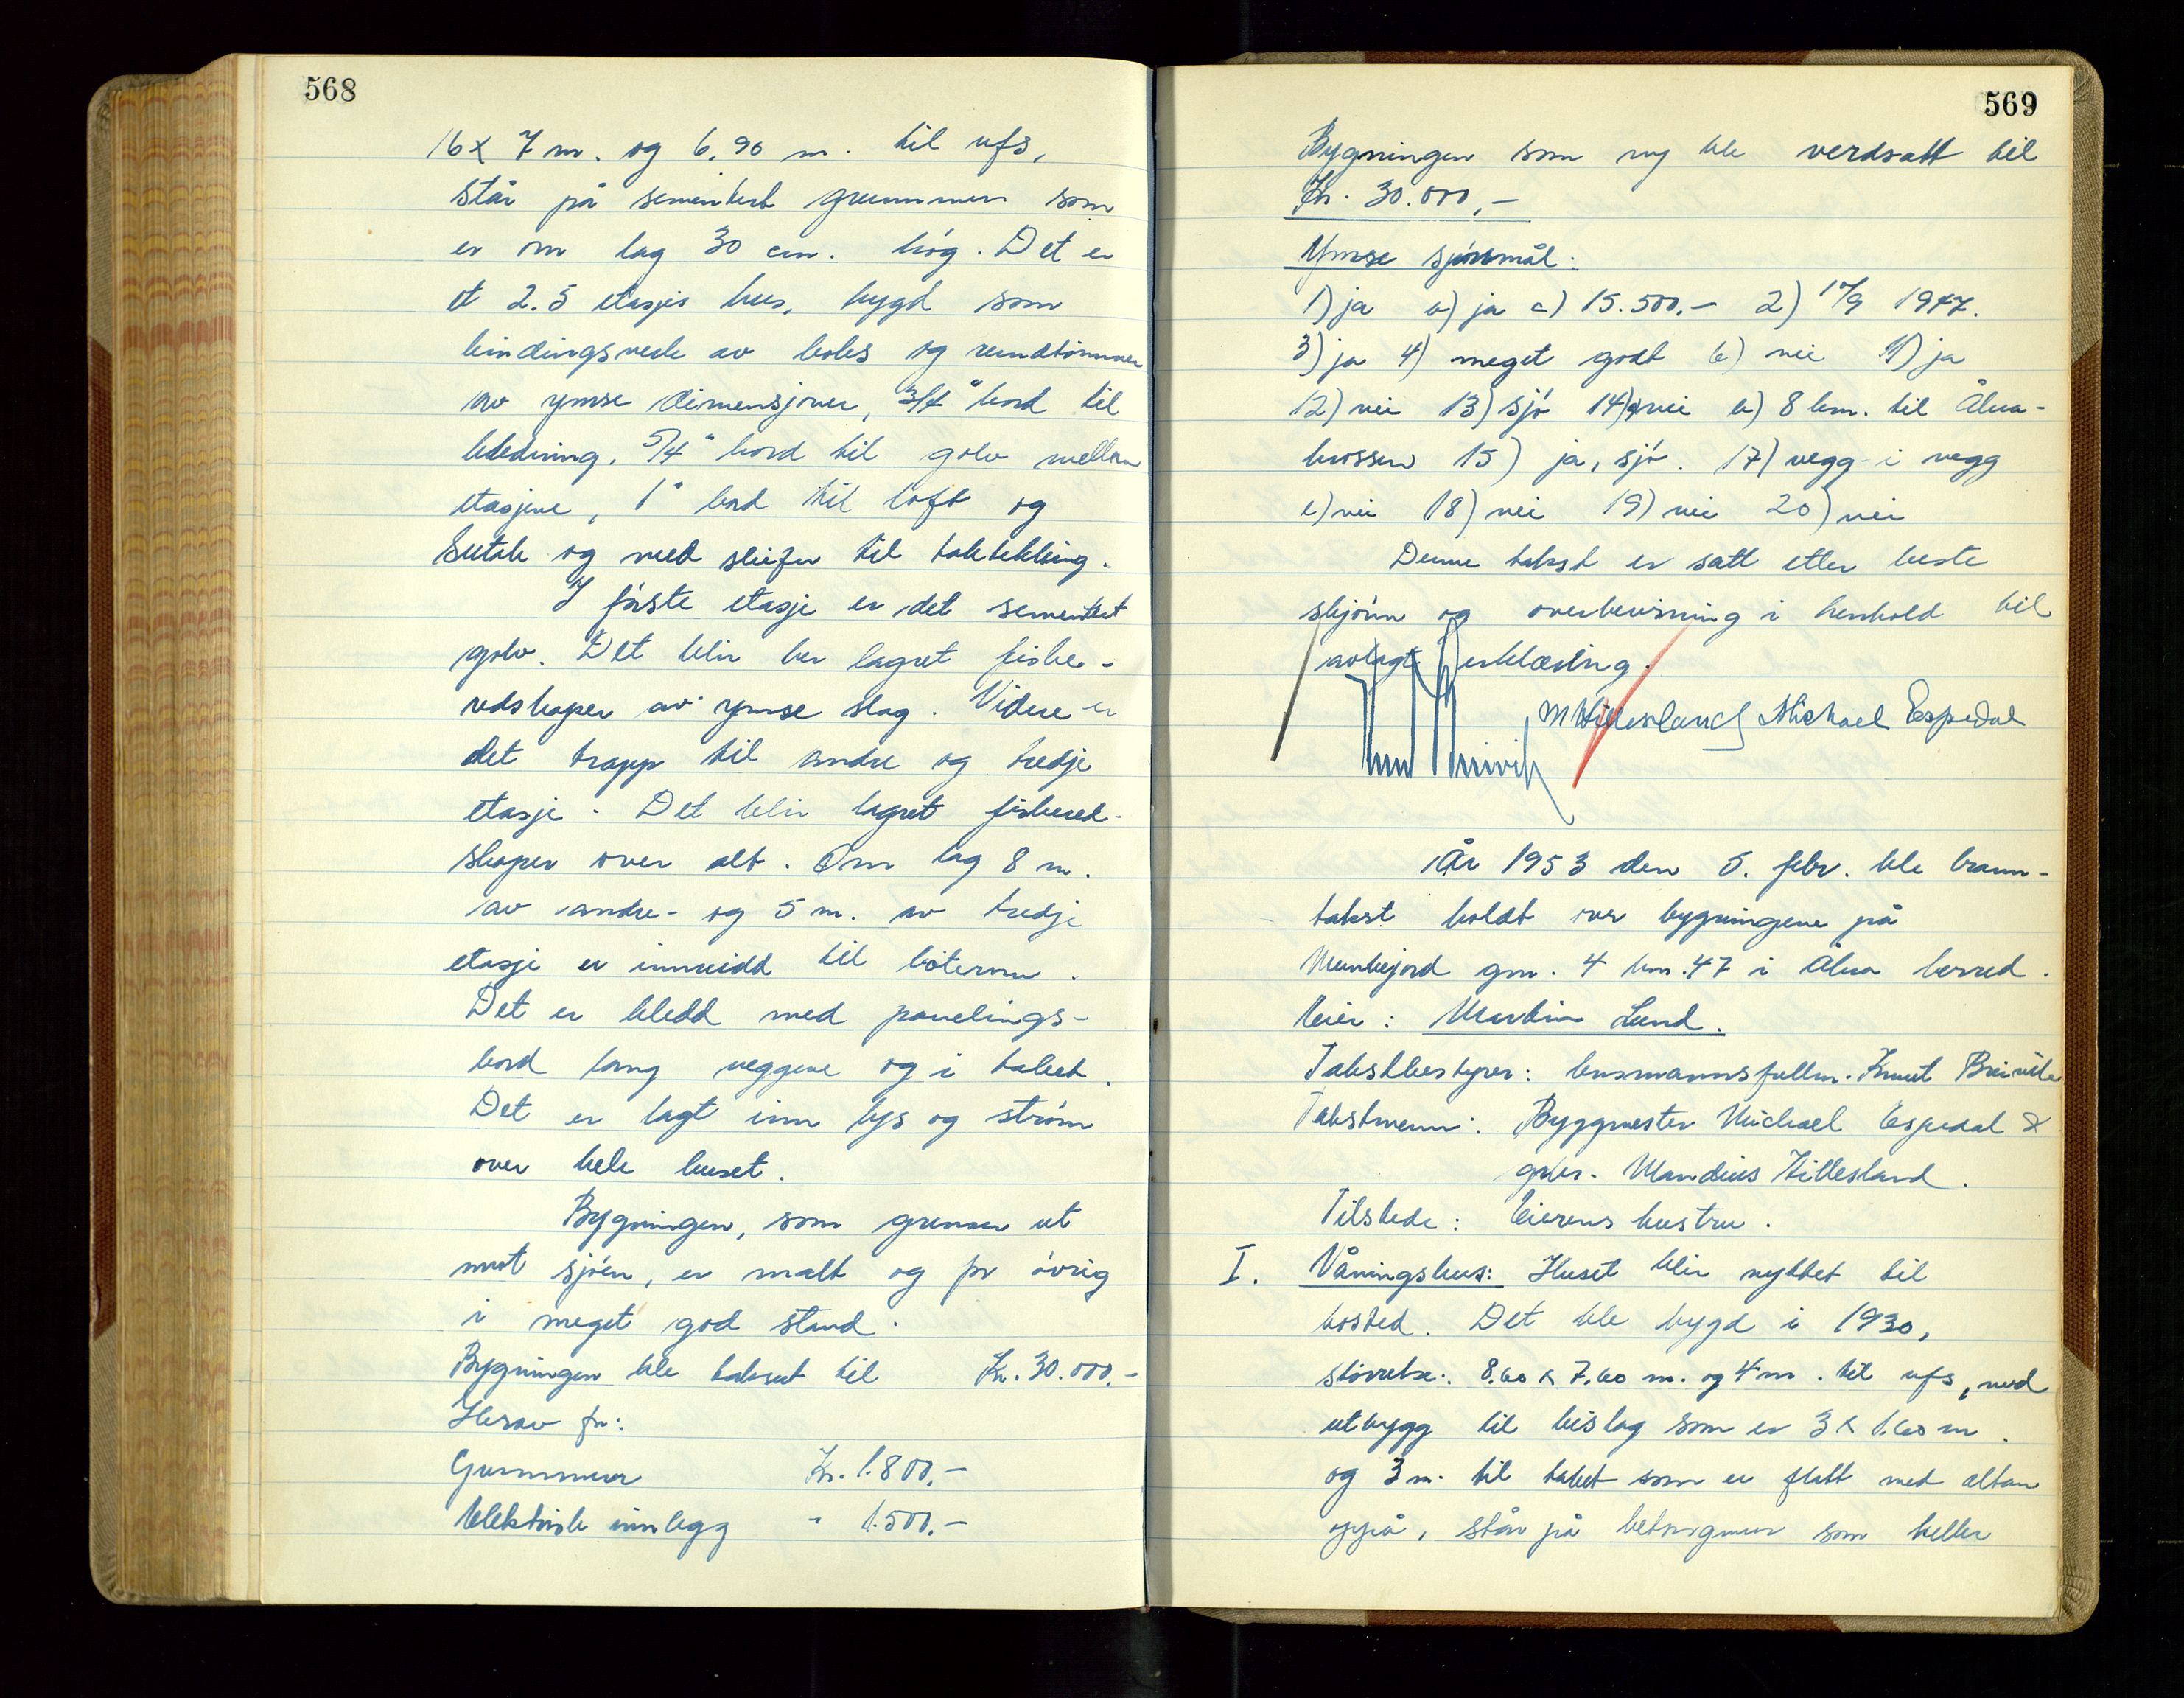 568
16 x 7 m. og 6.90 m. til ufs,
står på sementert grunnmur som
er om lag 30 cm. høg. Det er
et 2.5 etasjes hus, bygd som
bindingsverk av boks og rundtømmer
av ymse dimensjoner, 3/4" bord til
kledning, 5/4" bord til golv mellom
etasjene, 1" bord til loft og
sutak og med skifer til taktekking.
I første etasje er det sementert
golv. Det blir her lagret fiske-
redskaper av ymse slag. Videre er
det trapp til andre og tredje
etasje. Det blir lagret fiskered-
skaper over alt. Om lag 8 m.
av andre- og 5 m. av tredje
etasje er innreidd til bøterom.
Det er kledd med panelings-
bord lang veggene og i taket.
Det er lagt inn lys og strøm
over hele huset.
Bygningen, som grenser ut
mot sjøen, er malt og for øvrig
i meget god stand.
Bygningen ble taksert til Kr. 30.000.-
Herav for:
Grunnmur Kr. 1.800.-
Elektrisk innlegg " 1.500.-
569
Bygningen som ny ble verdsatt til
Kr. 30.000,-
Ymse spørsmål:
1) ja b) ja c) 15.500.- 2) 1947.
3) ja 4) meget godt 6) nei 11) ja
12) nei 13) sjø 14) a) nei b) 8 km. til Åkra-
hossen 15) ja, sjø. 17) vegg i vegg
c) nei 18) nei 19) nei 20) nei
Denne takst er satt etter beste
skjønn og overbevisning i henhold til
avlagt erklæring.
M Hillesland Michael Espedal
Knut Breivik
År 1953 den 5. febr. ble brann-
takst holdt over bygningene på
Munkejord gnr. 4 bnr. 47 i Åkra herred.
Eier: Martin Lund.
Takstbestyrer: lensmannsfullm. Knut Breivik
Takstmenn: Byggmester Michael Espedal &
gbr. Mandius Hillesland.
Tilstede: Eierens hustru.
I. Våningshus: Huset blir nyttet til
bosted. Det ble bygd i 1930,
størrelse: 8.60 x 7.60 m. og 4 m. til ufs, med
utbygg til bislag som er 3 x 1.60 m.
og 3 m. til taket som er flatt med altan
oppå, står på betongmur som heller